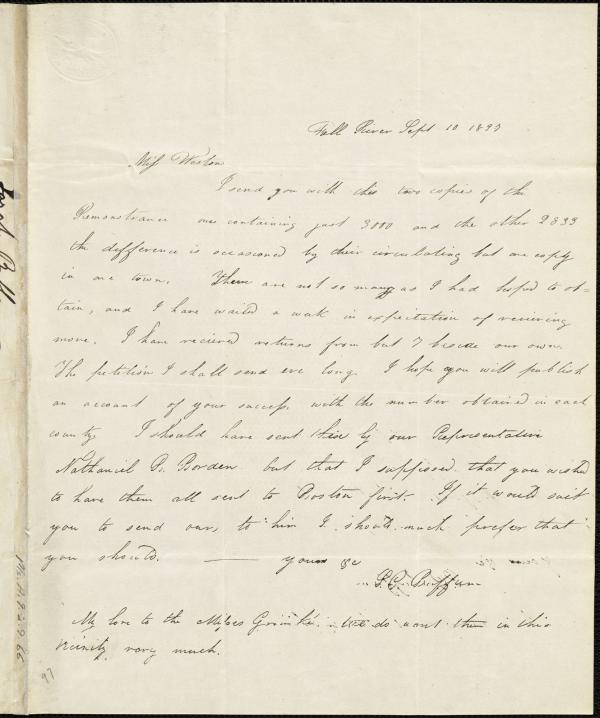 Fall River Sept 10 1837
Miss Weston
I send you with this two copies of the
Remonstrance one containing just 3000 and the other 2833
the difference is occasioned by their circulating but one copy
in one town. There are not so many as I had hoped to ob=
tain, and I have waited a week in expectation of recieving
more. I have recieved returns from but 7 beside our own.
The petition I shall send ere long. I hope you will publish
an account of your success with the number obtained in each
county I should have sent this by our Representative
Nathaniel B. Borden but that I supposed that you wished
to have them all sent to Boston first. If it would suit
you to send ours, to him I should much prefer that
you should. — yours &c
S. G. Buffum
My love to the Misses Grimké. We do want them in this
vicinity very much.
97